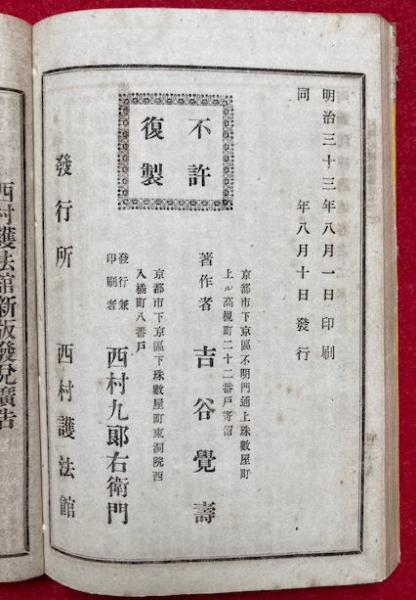 明治三十三年八月一日印刷
同　　　年八月十日發行
不許
復製
京都市下京區不明門通上珠數屋町
上ル高槻町二十二番戸寄留
著作者　吉谷覺壽
京都市下京區下珠數屋町東洞院西
入橘町八番戸
發行兼
印刷者　西村九郎右衛門
發行所　西村護法館
西村護法館新版發兌廣告